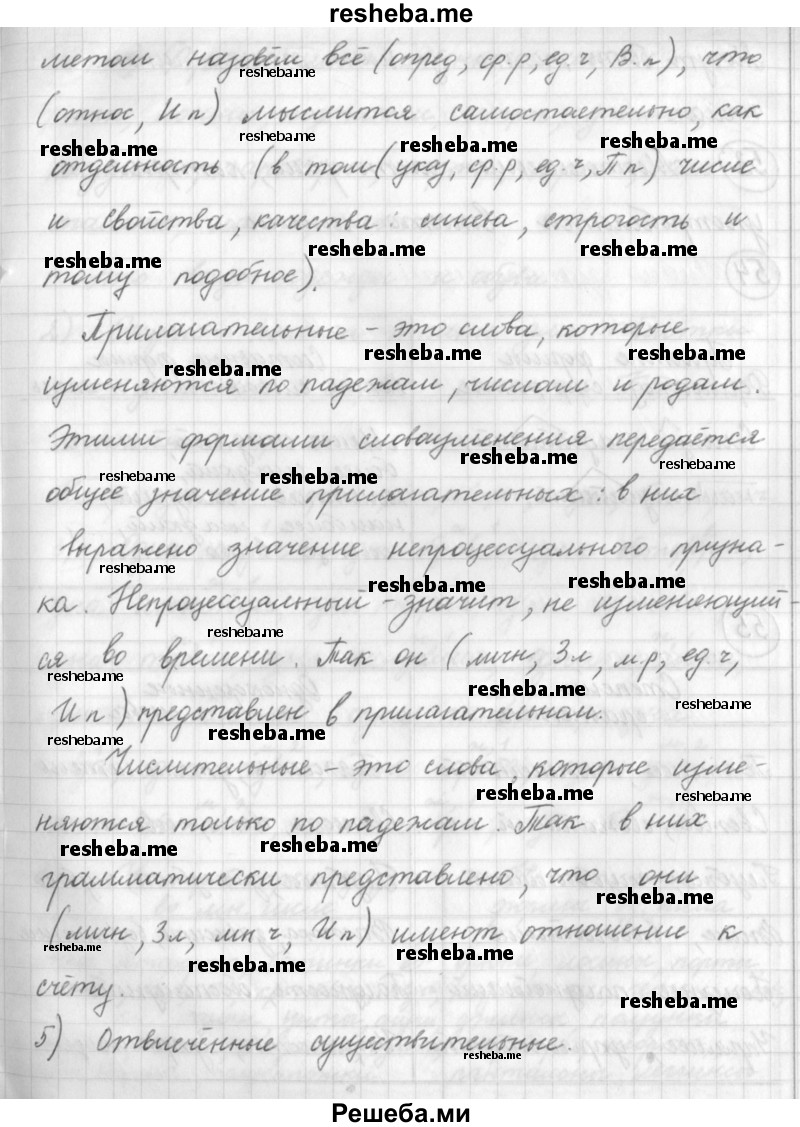 resheba.me
метом назовём всё (опред, ср.р, ед.ч, В.п), что
resheba.me
(относ, И п) мыслится самостоятельно, как
resheba.me
resheba.me resheba.me resheba.me
отдельность (в том (указ, ср.р, ед.ч, П п) числе
и свойства, качества: синева, строгость и
resheba.me resheba.me resheba.me
тому подобное).
Прилагательные - это слова, которые
resheba.me resheba.me resheba.me
изменяются по падежам, числам и родам.
Этими формами словоизменения передаётся
resheba.me resheba.me resheba.me resheba.me
общее значение прилагательных: в них
выражено значение непроцессуального призна-
resheba.me resheba.me resheba.me
ка. Непроцессуальный - значит, не изменяющий-
resheba.me
ся во времени. Так он (личн, 3л, м.р, ед.ч,
resheba.me resheba.me resheba.me
И п) представлен в прилагательном.
resheba.me resheba.me
Числительные - это слова, которые изме-
resheba.me resheba.me
няются только по падежам. Так в них
resheba.me resheba.me
грамматически представлено, что они
resheba.me
(личн, 3л, мн ч, И п) имеют отношение к
resheba.me resheba.me resheba.me
счёту.
resheba.me
5) Отвлечённые существительные.
resheba.me
Решеба.ми